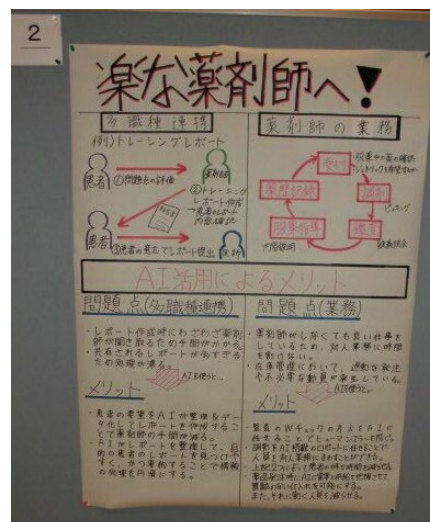 2
楽な薬剤師へ!
多職種連携
例)トレーニングレポート
患者
①問題点の評価
薬剤師
②トレーニング
レポート作成
患者
③患者の意志でレポート提出
医師
薬剤師の業務
受付
調剤
ピッキング
監査
服薬指導
薬歴記録
AI活用によるメリット
問題点(多職種連携)
・レポート作成時にわざわざ薬剤
師が聞き取るため手間がかかる。
・共有されるレポートが多すぎる
ため処理が滞る。
AIを使うと…
メリット
・患者の要望をAIが整理&デー
タ化してレポートを作成するこ
とで薬剤師の手間が減る。
・AIがレポートを整理して、目
的の患者のレポートを見つけや
すく、かつ要約することで情報
の処理を円滑にする。
問題点(業務)
・薬剤師がしなくても良い仕事を
しているため、対人業務に時間
を割けない。
・在庫管理において、過剰な発注
や不必要な動員が発生している。
AIを使うと…
メリット
・監査のWチェックの片方をAIに
任せることでヒューマンエラーを防ぐ。
・調剤をAI搭載のロボットに任せることで
人員を対人業務にまわすことができる。